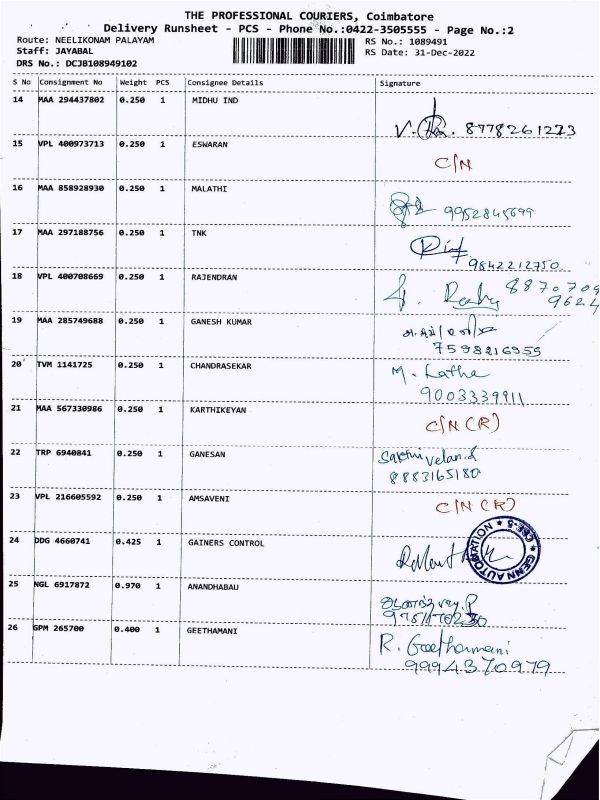 THE PROFESSIONAL COURIERS, Coimbatore
Delivery Runsheet - PCS - Phone No.:0422-3505555 - Page No.:2
Route: NEELIKONAM PALAYAM
RS No.: 1089491
Staff: JAYABAL
RS Date: 31-Dec-2022
DRS No.: DCJB108949102
S No Consignment No Weight PCS Consignee Details Signature
14 MAA 294437802 0.250 1 MIDHU IND
8778261223
15 VPL 400973713 0.250 1 ESWARAN
C/N
16 MAA 858928930 0.250 1 MALATHI
9952845699
17 MAA 297188756 0.250 1 TNK
9842212750
18 VPL 400708669 0.250 1 RAJENDRAN
887070
9624
19 MAA 285749688 0.250 1 GANESH KUMAR
7598216955
20 TVM 1141725 0.250 1 CHANDRASEKAR
M. Latha
9003339911
21 MAA 567330986 0.250 1 KARTHIKEYAN
C/N (R)
22 TRP 6940841 0.250 1 GANESAN
Sakthi velan.S
8883165180
23 VPL 216605592 0.250 1 AMSAVENI
C/N (R)
24 DDG 4660741 0.425 1 GAINERS CONTROL
GENN AUTOMATION ★ CBE-5 ★
25 NGL 6917872 0.970 1 ANANDHABAU
26 GPM 265700 0.400 1 GEETHAMANI
R. Geethamani
9994370979